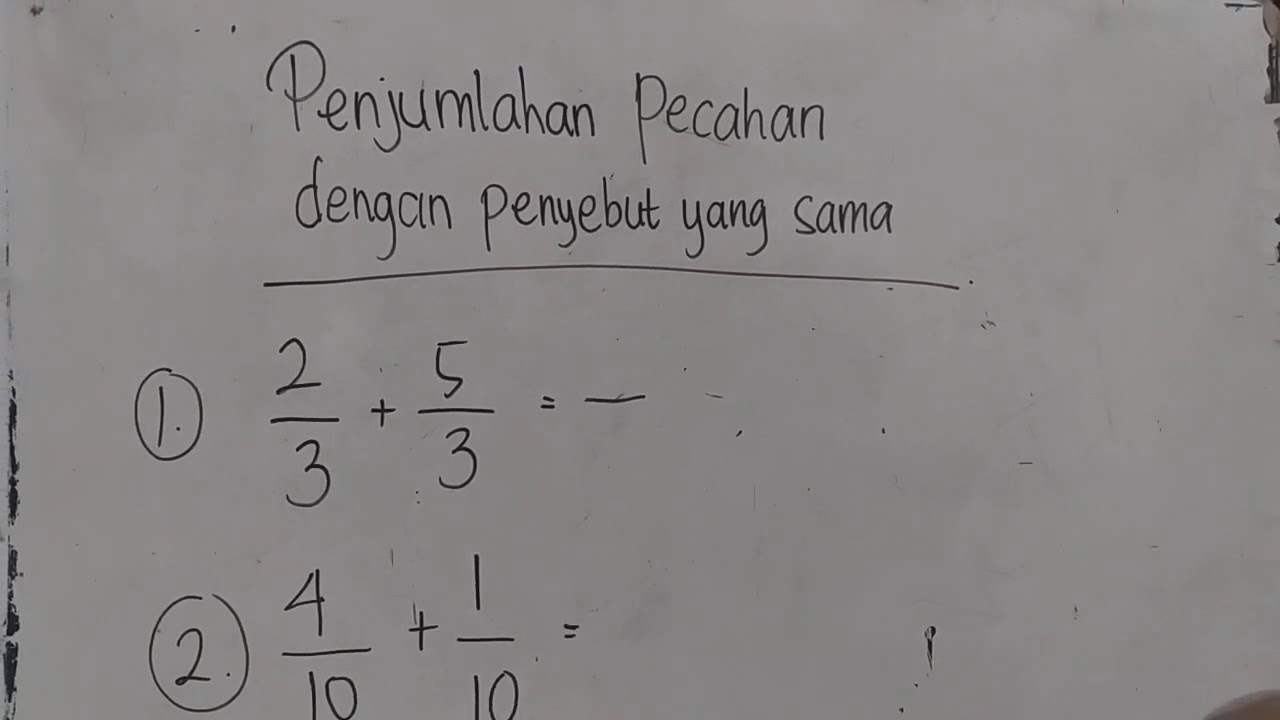 Penjumlahan Pecahan
dengan penyebut yang sama
1. 2/3 + 5/3 = —
2. 4/10 + 1/10 =